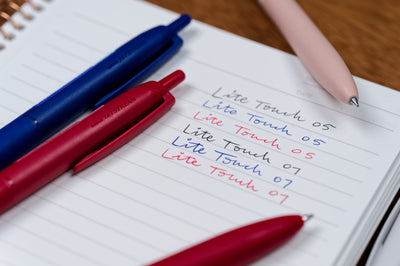 Lite Touch 05
Lite Touch 05
Lite Touch 05
Lite Touch 07
Lite Touch 07
Lite Touch 07